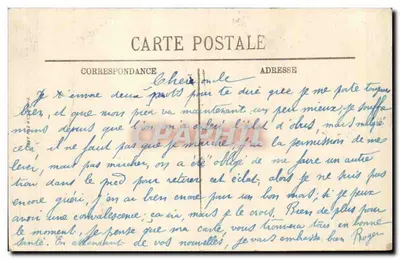 CARTE POSTALE
CORRESPONDANCE ADRESSE
Cher oncle
Je t'envoie deux mots pour te dire que je me porte toujours
bien, et que mon pied va maintenant un peu mieux; je souffre
moins depuis que d'obus, mais malgré
cela, il ne faut pas que je marche la permission de me
lever, mais pas marcher, on a été obligé de me faire un autre
trou dans le pied pour retirer cet éclat, alors je ne suis pas
encore guéri, j'en ai bien encore pour un bon mois, si je peux
avoir une convalescence; ça ira, mais je le crois. Rien de plus pour
le moment, je pense que ma carte vous trouvera tous en bonne
santé. En attendant de vos nouvelles, je vous embrasse bien Roger